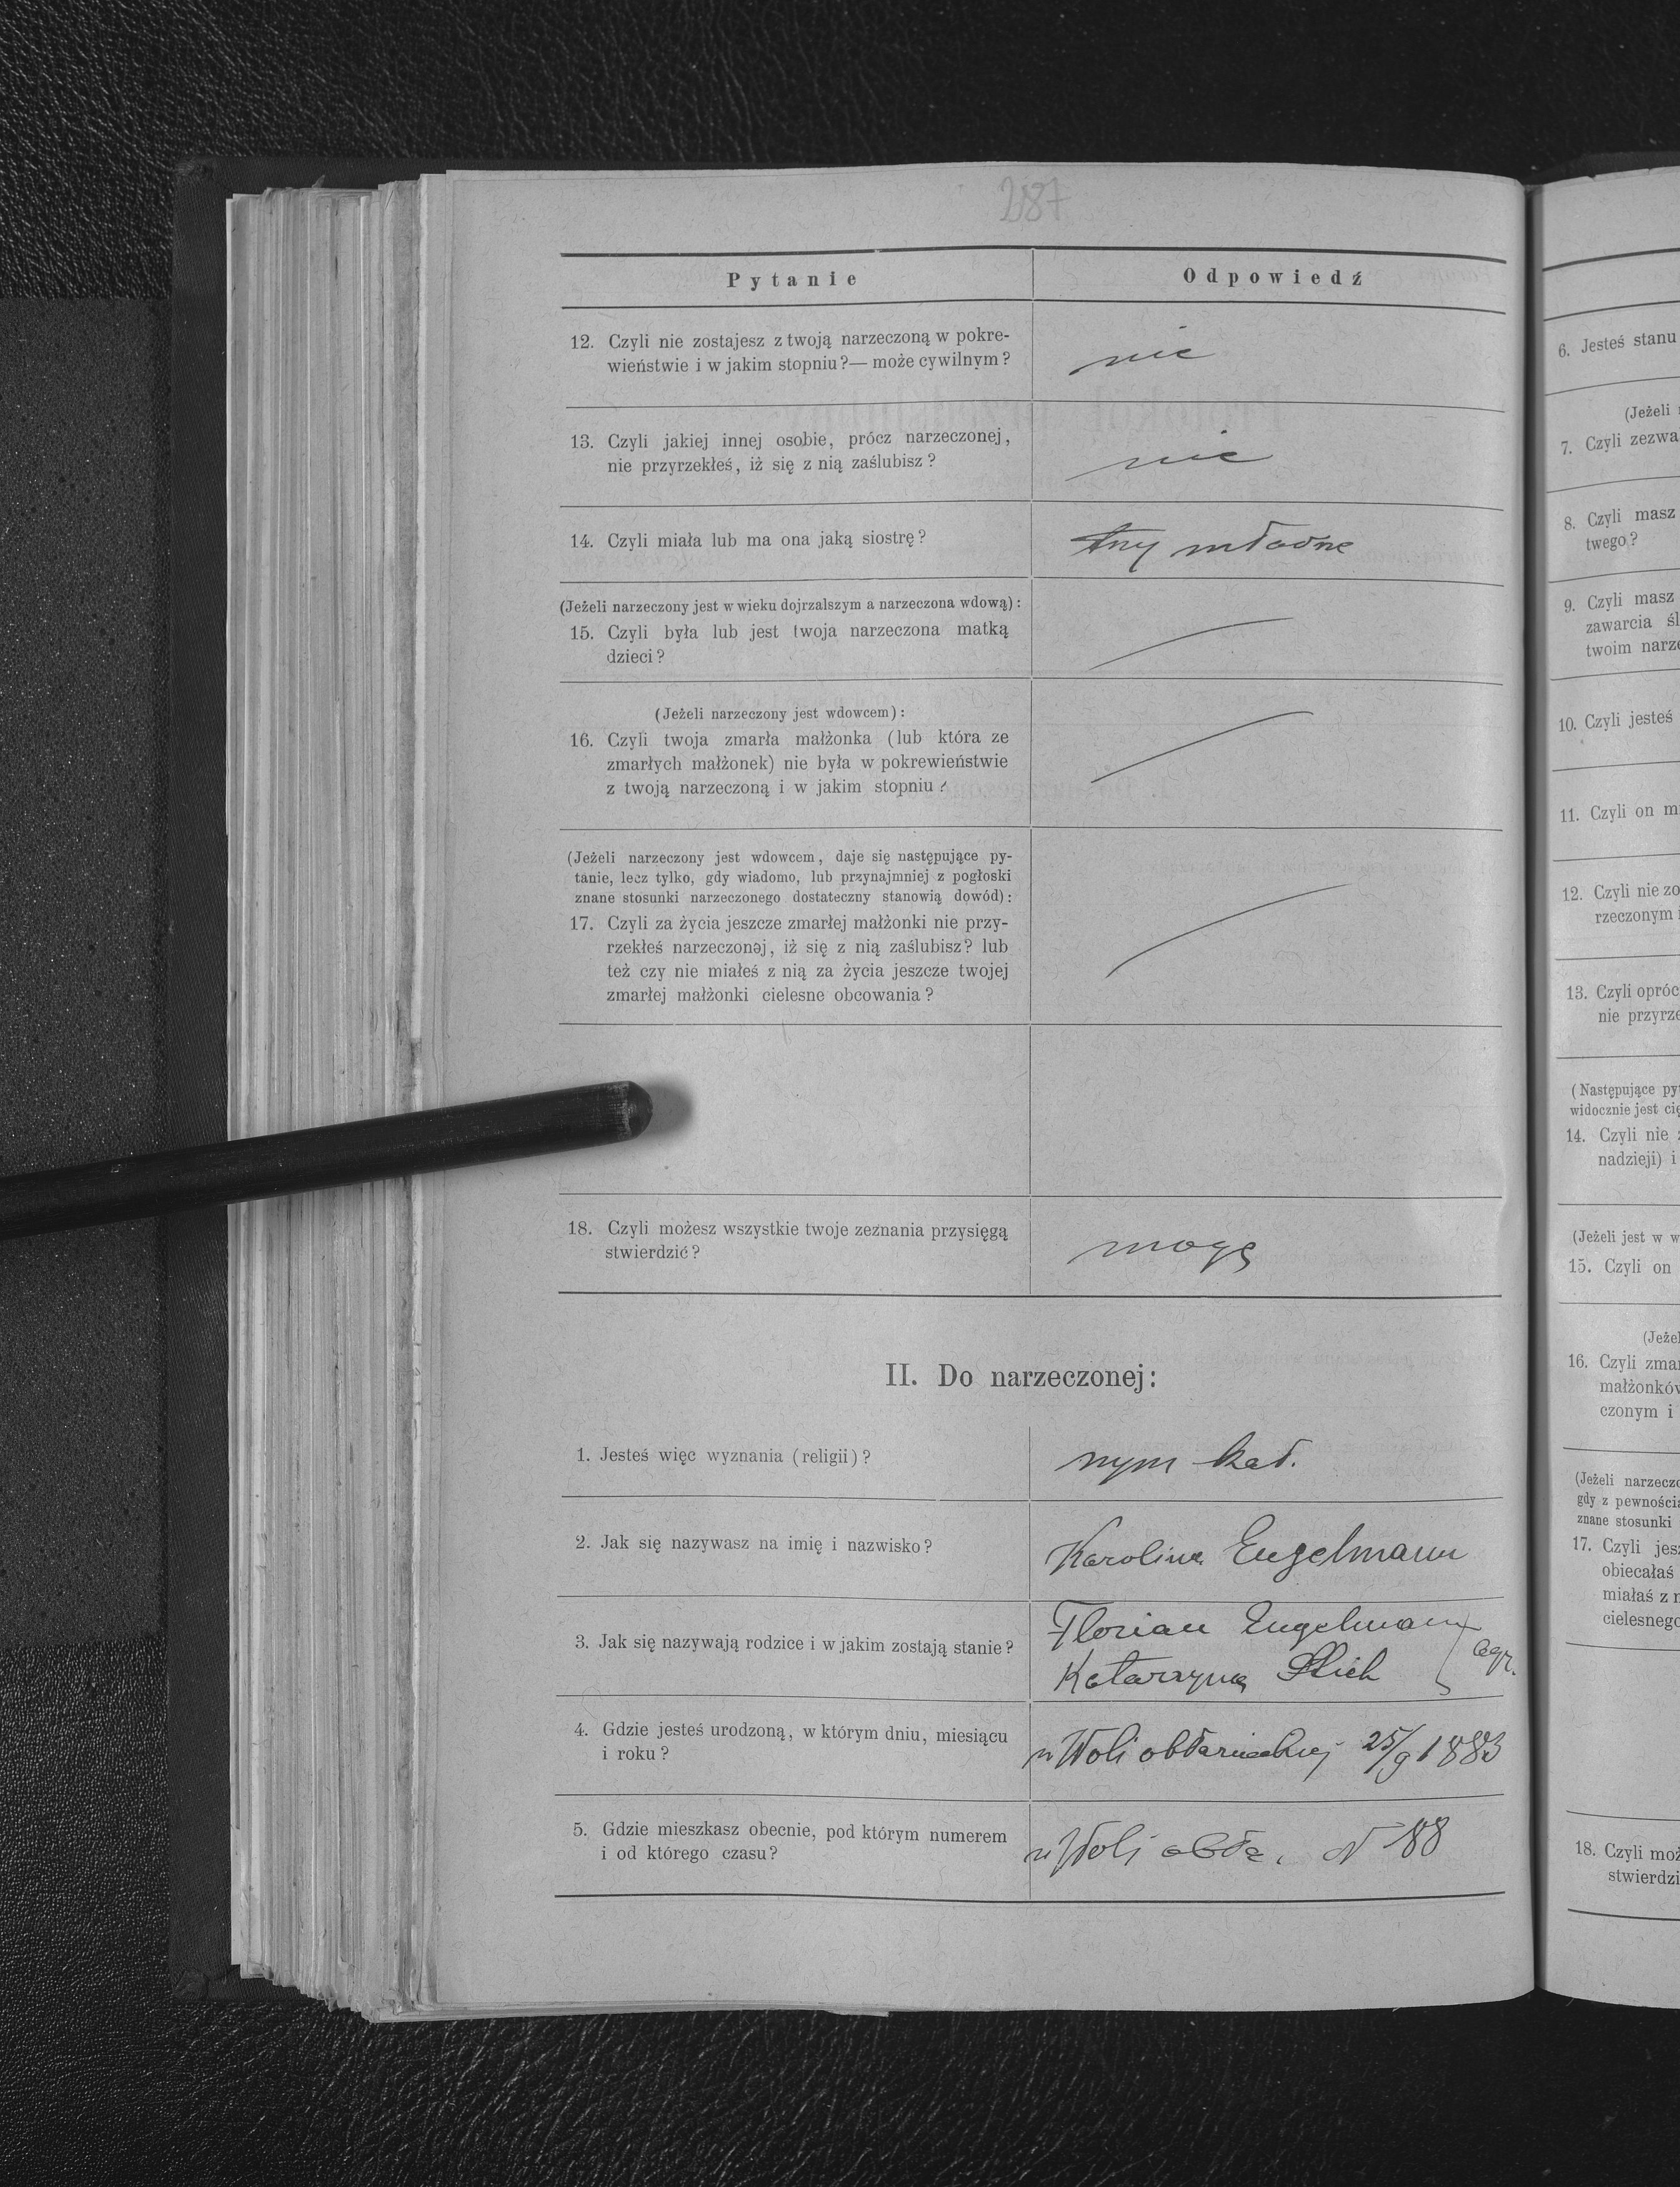 287
Pytanie
Odpowiedź
12. Czyli nie zostajesz z twoją narzeczoną w pokre-
wieństwie i w jakim stopniu?— może cywilnym?
nie
13. Czyli jakiej innej osobie, prócz narzeczonej,
nie przyrzekłeś, iż się z nią zaślubisz?
nie
14. Czyli miała lub ma ona jaką siostrę?
trzy młodsze
(Jeżeli narzeczony jest w wieku dojrzalszym a narzeczona wdową):
15. Czyli była lub jest twoja narzeczona matką
dzieci?
(Jeżeli narzeczony jest wdowcem):
16. Czyli twoja zmarła małżonka (lub która ze
zmarłych małżonek) nie była w pokrewieństwie
z twoją narzeczoną i w jakim stopniu?
(Jeżeli narzeczony jest wdowcem, daje się następujące py-
tanie, lecz tylko, gdy wiadomo, lub przynajmniej z pogłoski
znane stosunki narzeczonego dostateczny stanowią dowód):
17. Czyli za życia jeszcze zmarłej małżonki nie przy-
rzekłeś narzeczonej, iż się z nią zaślubisz? lub
też czy nie miałeś z nią za życia jeszcze twojej
zmarłej małżonki cielesne obcowania?
18. Czyli możesz wszystkie twoje zeznania przysięgą
stwierdzić?
mogę
II. Do narzeczonej:
1. Jesteś więc wyznania (religii)?
rzym kat.
2. Jak się nazywasz na imię i nazwisko?
Karolina Engelmann
3. Jak się nazywają rodzice i w jakim zostają stanie?
Florian Engelmann
Katarzyna
agr.
4. Gdzie jesteś urodzoną, w którym dniu, miesiącu
i roku?
w Woli obłaznickiej 25/9 1883
5. Gdzie mieszkasz obecnie, pod którym numerem
i od którego czasu?
w Woli obła. N 188
6. Jesteś stanu
(Jeżeli
7. Czyli zezwa
8. Czyli masz
twego?
9. Czyli masz
zawarcia śl
twoim narze
10. Czyli jesteś
11. Czyli on m
12. Czyli nie zo
rzeczonym i
13. Czyli opróc
nie przyrze
(Następujące pyt
widocznie jest cię
14. Czyli nie
nadzieji) i
(Jeżeli jest w w
15. Czyli on
(Jeżel
16. Czyli zmar
małżonków
czonym i
(Jeżeli narzeczo
gdy z pewnością
znane stosunki
17. Czyli jesz
obiecałaś
miałaś z n
cielesnego
18. Czyli moż
stwierdzi